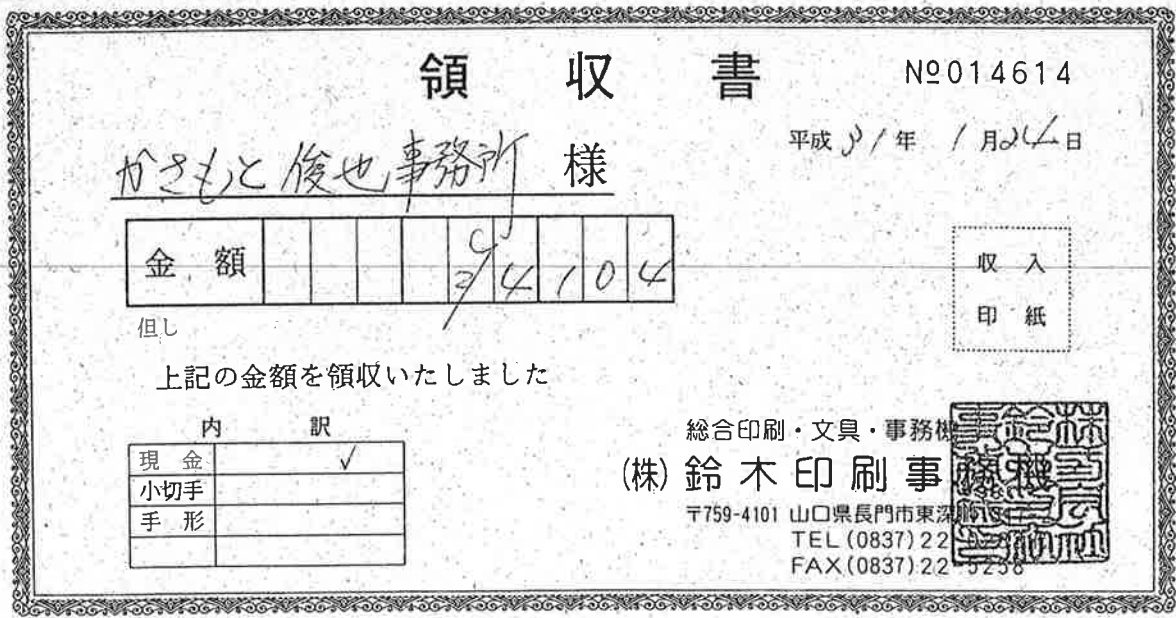 領収書 №014614
平成31年1月24日
かさもと俊也事務所 様
金額 24104
収入
印紙
但し
上記の金額を領収いたしました
内訳
現金 ✓
小切手
手形
総合印刷・文具・事務機
(株)鈴木印刷事務機
〒759-4101 山口県長門市東深
TEL(0837)22
FAX(0837)22-5238